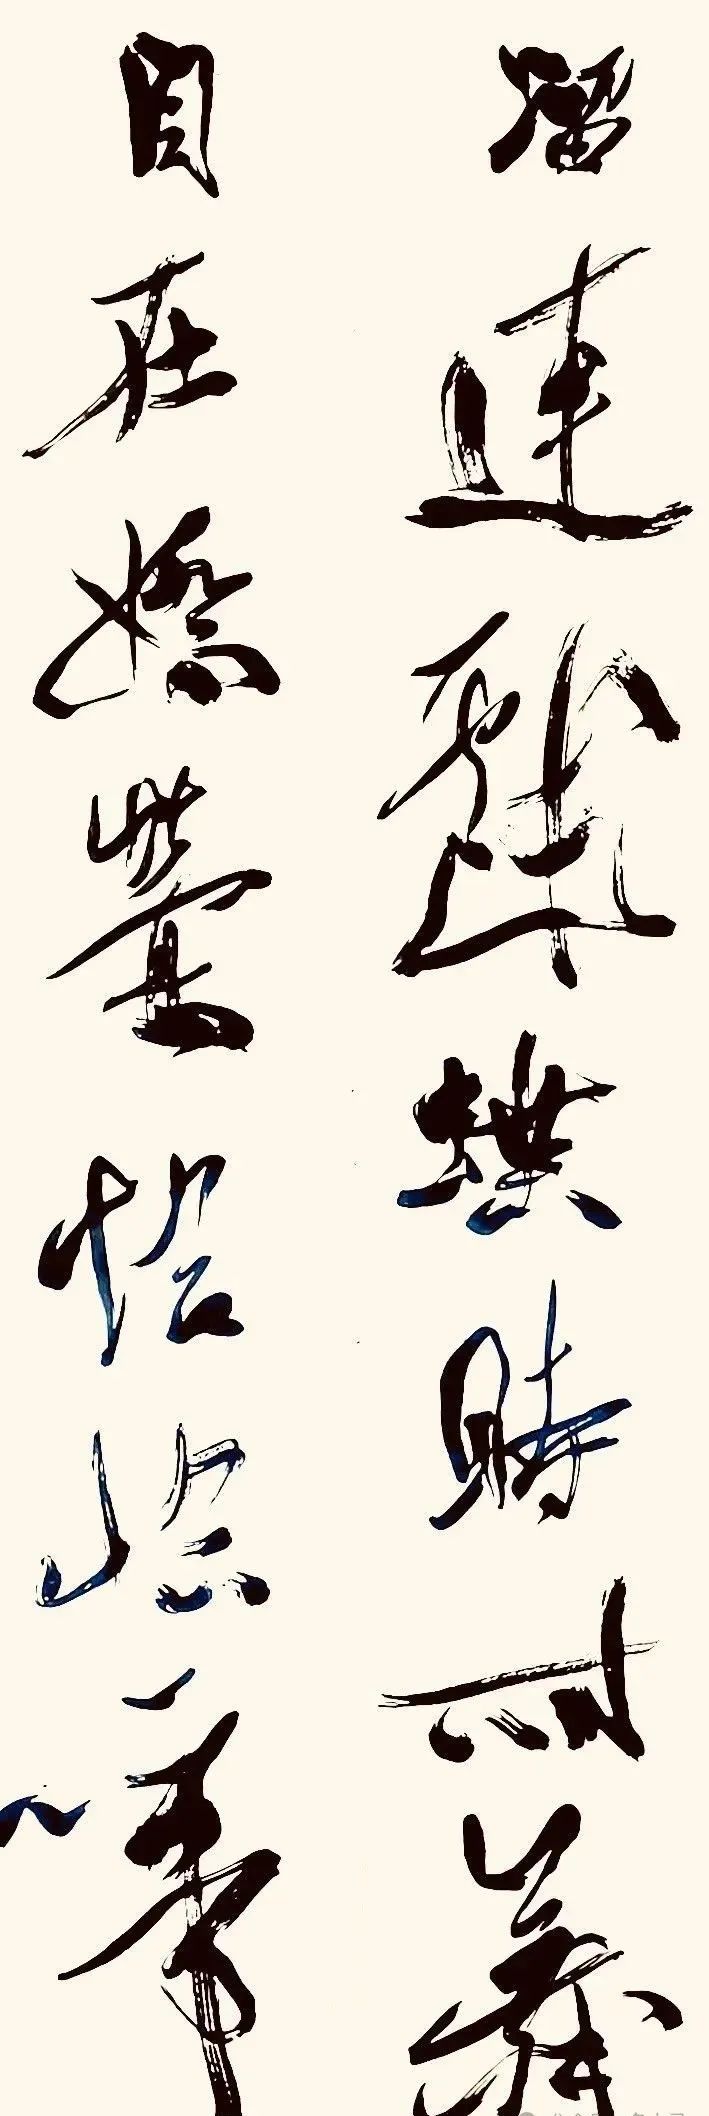 留連戲蝶時時舞
自在嬌鶯恰恰啼